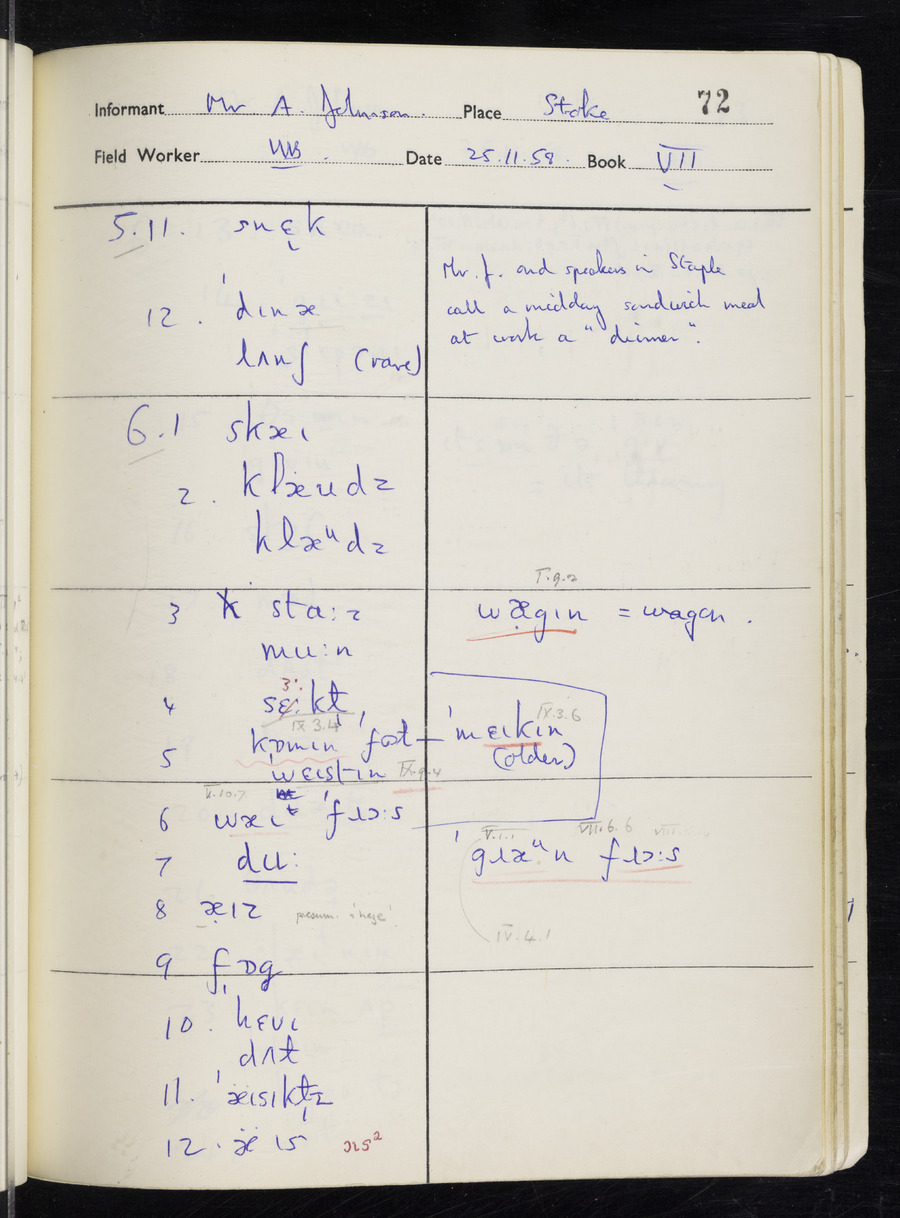 Informant Mr A. Johnson. Place Stoke 72
Field Worker WB. Date 25.11.58. Book VII
5.11. snɛ̞k
12. ˈdɪnæ
lʌnʃ (rare)
Mr. J. and speakers in Staple
call a midday sandwich meal
at work a "dinner".
6.1 skæɪ
2. klæudz
klæᵘdz
3 staːz
muːn
I.9.2
wægɪn = wagon.
4 kt
3ː
IX.3.4
5 kɒmɪn ˈfast
ˈmɛɪkɪn IX.3.6
(older)
wɛɪstɪn IX.9.4
V.10.7
6 wæɪt ˈfɹɔːs
V.1.1 VII.6.6
ˈgɹæᵘn fɹɔːs
7 duː
8 æɪz
IV.4.1
9 fɒg
10. ˈhɛvɪ
dʌt
11. ˈæɪsɪktz
12. æɪs